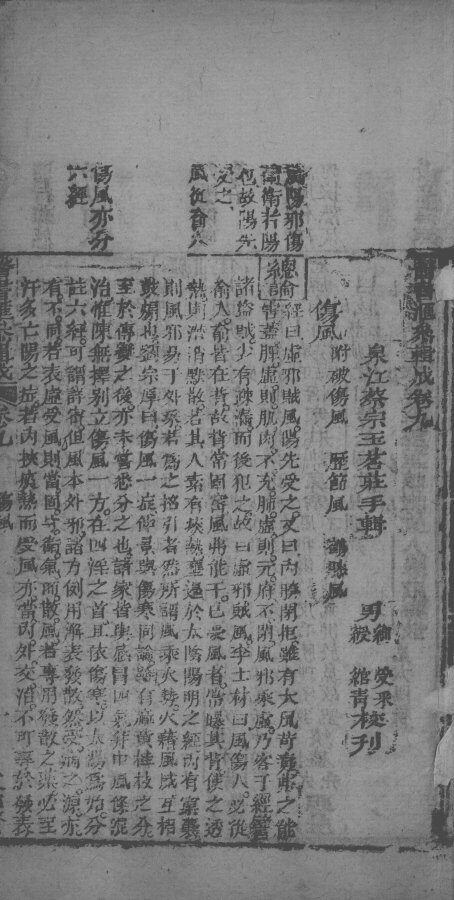 醫書匯參輯成卷九
泉江蔡宗玉茗莊手輯
男 校刊
傷風
附破傷風 歷節風
經曰虛邪賊風陽先受之又曰肉腠閉拒雖有大風苛毒弗之能
害蓋脾虛則肌肉不充肺虛則元府不閉風邪乘虛乃客于經
諸偷賊必有疎漏而後犯之故曰虛邪賊風李士材曰風傷人必從
俞入俞皆在背故背常固密風弗能干已受風者常曝其背使之透
熱則潛消默散若其人素有痰熱壅遏於太陰陽明之經內有窠囊
則風邪易于外束若為之招引者然所謂風乘火勢火藉風威互相
鼓煽也劉宗厚曰傷風一症仲景與傷寒同論雖有麻黃桂枝之分
至於傳變之後亦未嘗悉分之也諸家皆與感冒四氣并中風條混
治惟陳無擇別立傷風一方在四淫之首且依傷寒以太陽為始分
註六經可謂詳密但風本外邪諸方例用解表發散然受病之源亦
有不同若表虛受風則當固守衛氣而散風若專用發散之藥必至
汗多亡陽之症若內挾痰熱而受風亦當內外交治不可專於發表
陽邪傷
衛衛者陽
也故陽先
受之
風從俞入
傷風亦分
六經
醫書匯參輯成
卷九
傷風